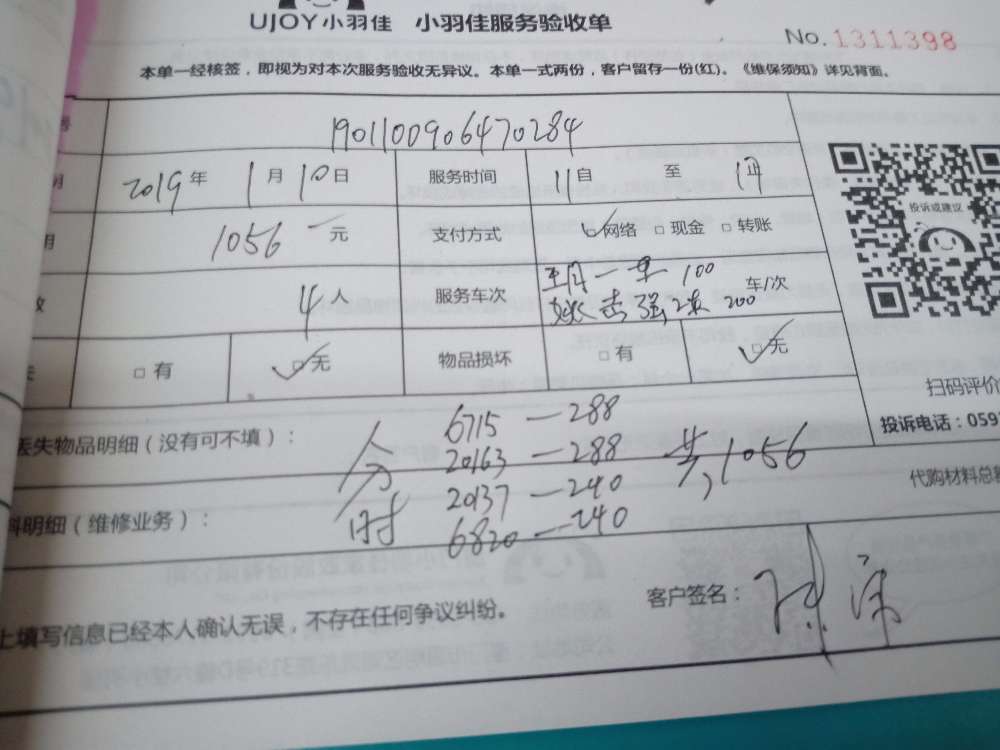 UJOY小羽佳 小羽佳服务验收单
No. 1311398
本单一经核签，即视为对本次服务验收无异议。本单一式两份，客户留存一份(红)。《维保须知》详见背面。
1901100906470284
2019年 1月10日 服务时间 11自 至
1056 元 支付方式 网络 现金 转账
投诉或建议
4人 服务车次 一 100 车/次
200
有 无 物品损坏 有 无
扫码评价
投诉电话：059
丢失物品明细（没有可不填）：
6715 — 288
20163 — 288 共，1056
代购材料总额
料明细（维修业务）：
20137 — 240
6820 — 240
上填写信息已经本人确认无误，不存在任何争议纠纷。
客户签名：